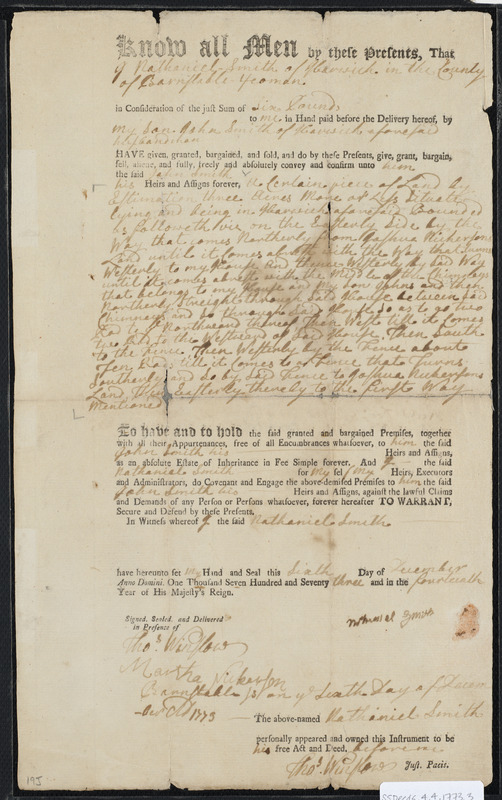 Know all Men by these Presents, That
I Nathaniel Smith of Harwich in the County
of Barnstable Yeoman
in Consideration of the just Sum of Six Pounds
to me in Hand paid before the Delivery hereof, by
my Son John Smith of Harwich aforesaid
Husbandman
HAVE given, granted, bargained, and sold, and do by these Presents, give, grant, bargain,
sell, aliene, and fully, freely and absolutely convey and confirm unto him
the said John Smith
his Heirs and Assigns forever, A Certain piece of Land by
Estimation three Acres More or Less Situate
lying and being in Harwich aforesaid Bounded
as followeth viz on the Easterly Side by the
Way that comes Northerly from Joshua Nickersons
Land until it comes to the Way that turns
Westerly to my House and thence Westerly by said Way
until it comes with the Middle of the Chimneys
that belongs to my House and my Son Johns and then
Northerly Streight through said House between said
Chimneys and so through said House so as to go two
Rod to the Northward thereof then West till it comes
two Rod to the Westward of said House then South
to the fence then Westerly by the fence about
Ten Rods till it comes to a fence that turns
Southerly and so by said Fence to Joshua Nickersons
Land then Easterly thereby to the first Way
Mentioned
To have and to hold the said granted and bargained Premises, together
with all their Appurtenances, free of all Encumbrances whatsoever, to him the said
John Smith his Heirs and Assigns,
as an absolute Estate of Inheritance in Fee Simple forever. And I the said
Nathaniel Smith for my self my Heirs, Executors
and Administrators, do Covenant and Engage the above-demised Premises to him the said
John Smith his Heirs and Assigns, against the lawful Claims
and Demands of any Person or Persons whatsoever, forever hereafter TO WARRANT,
Secure and Defend by these Presents.
In Witness whereof I the said Nathaniel Smith
have hereunto set my Hand and Seal this Sixth Day of December
Anno Domini. One Thousand Seven Hundred and Seventy three and in the fourteenth
Year of His Majesty's Reign.
Signed, Sealed, and Delivered
in Presence of
Nathaniel Smith
Thos Winslow
Martha Nickerson
Barnstable ss on ye Sixth Day of Decem
ber AD 1773
The above-named Nathaniel Smith
personally appeared and owned this Instrument to be
his free Act and Deed, before me
Thos Winslow Just. Pacis.
195
SSDV46.4.4.1773.3